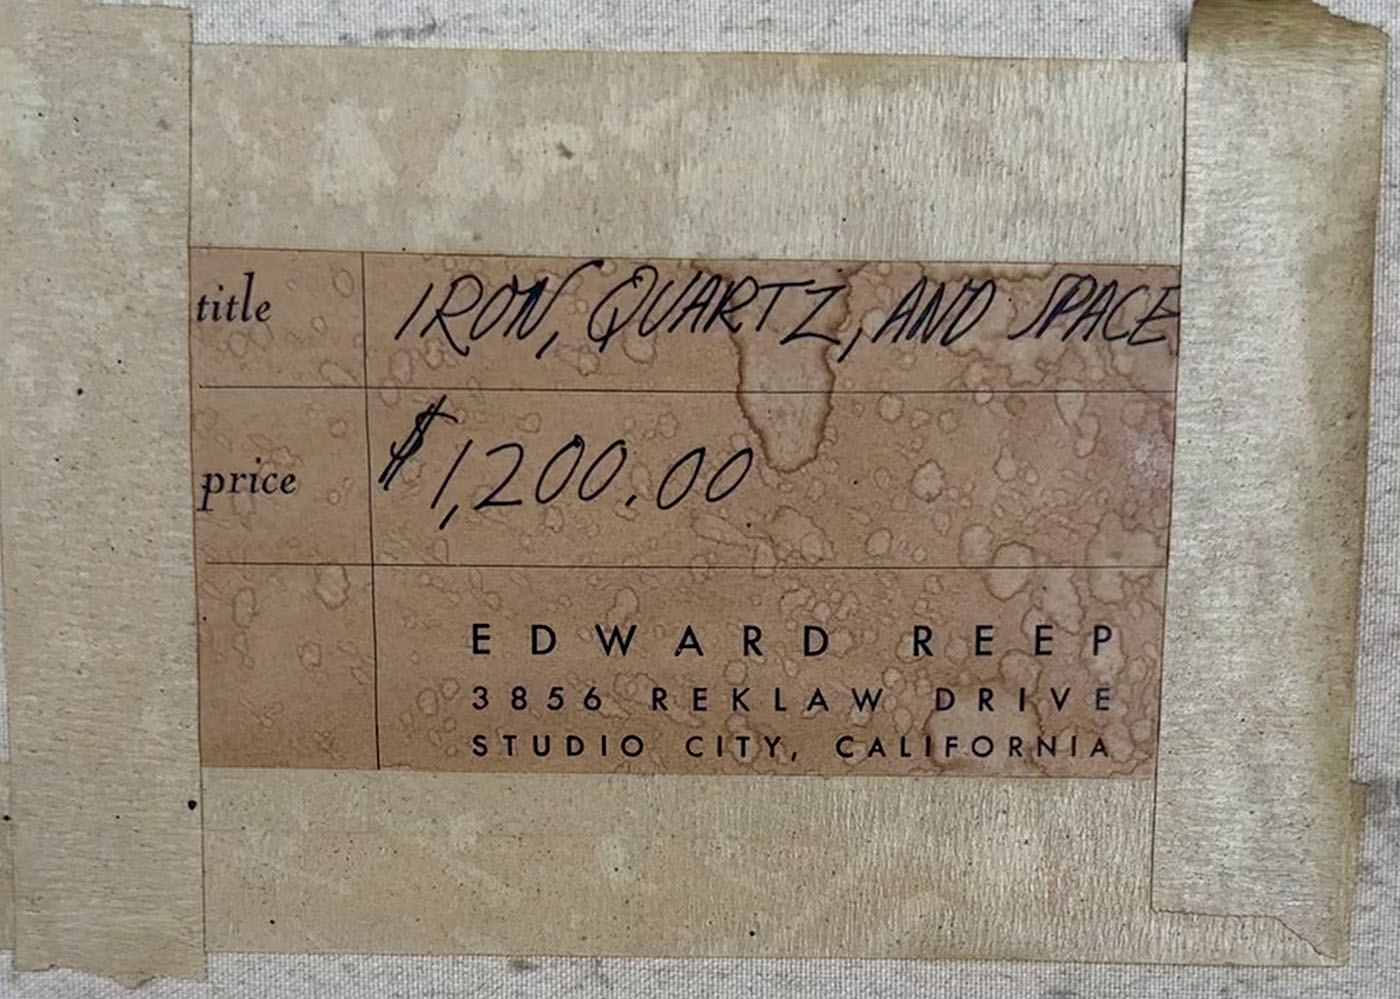 title IRON, QUARTZ, AND SPACE
price $1,200.00
EDWARD REEP
3856 REKLAW DRIVE
STUDIO CITY, CALIFORNIA